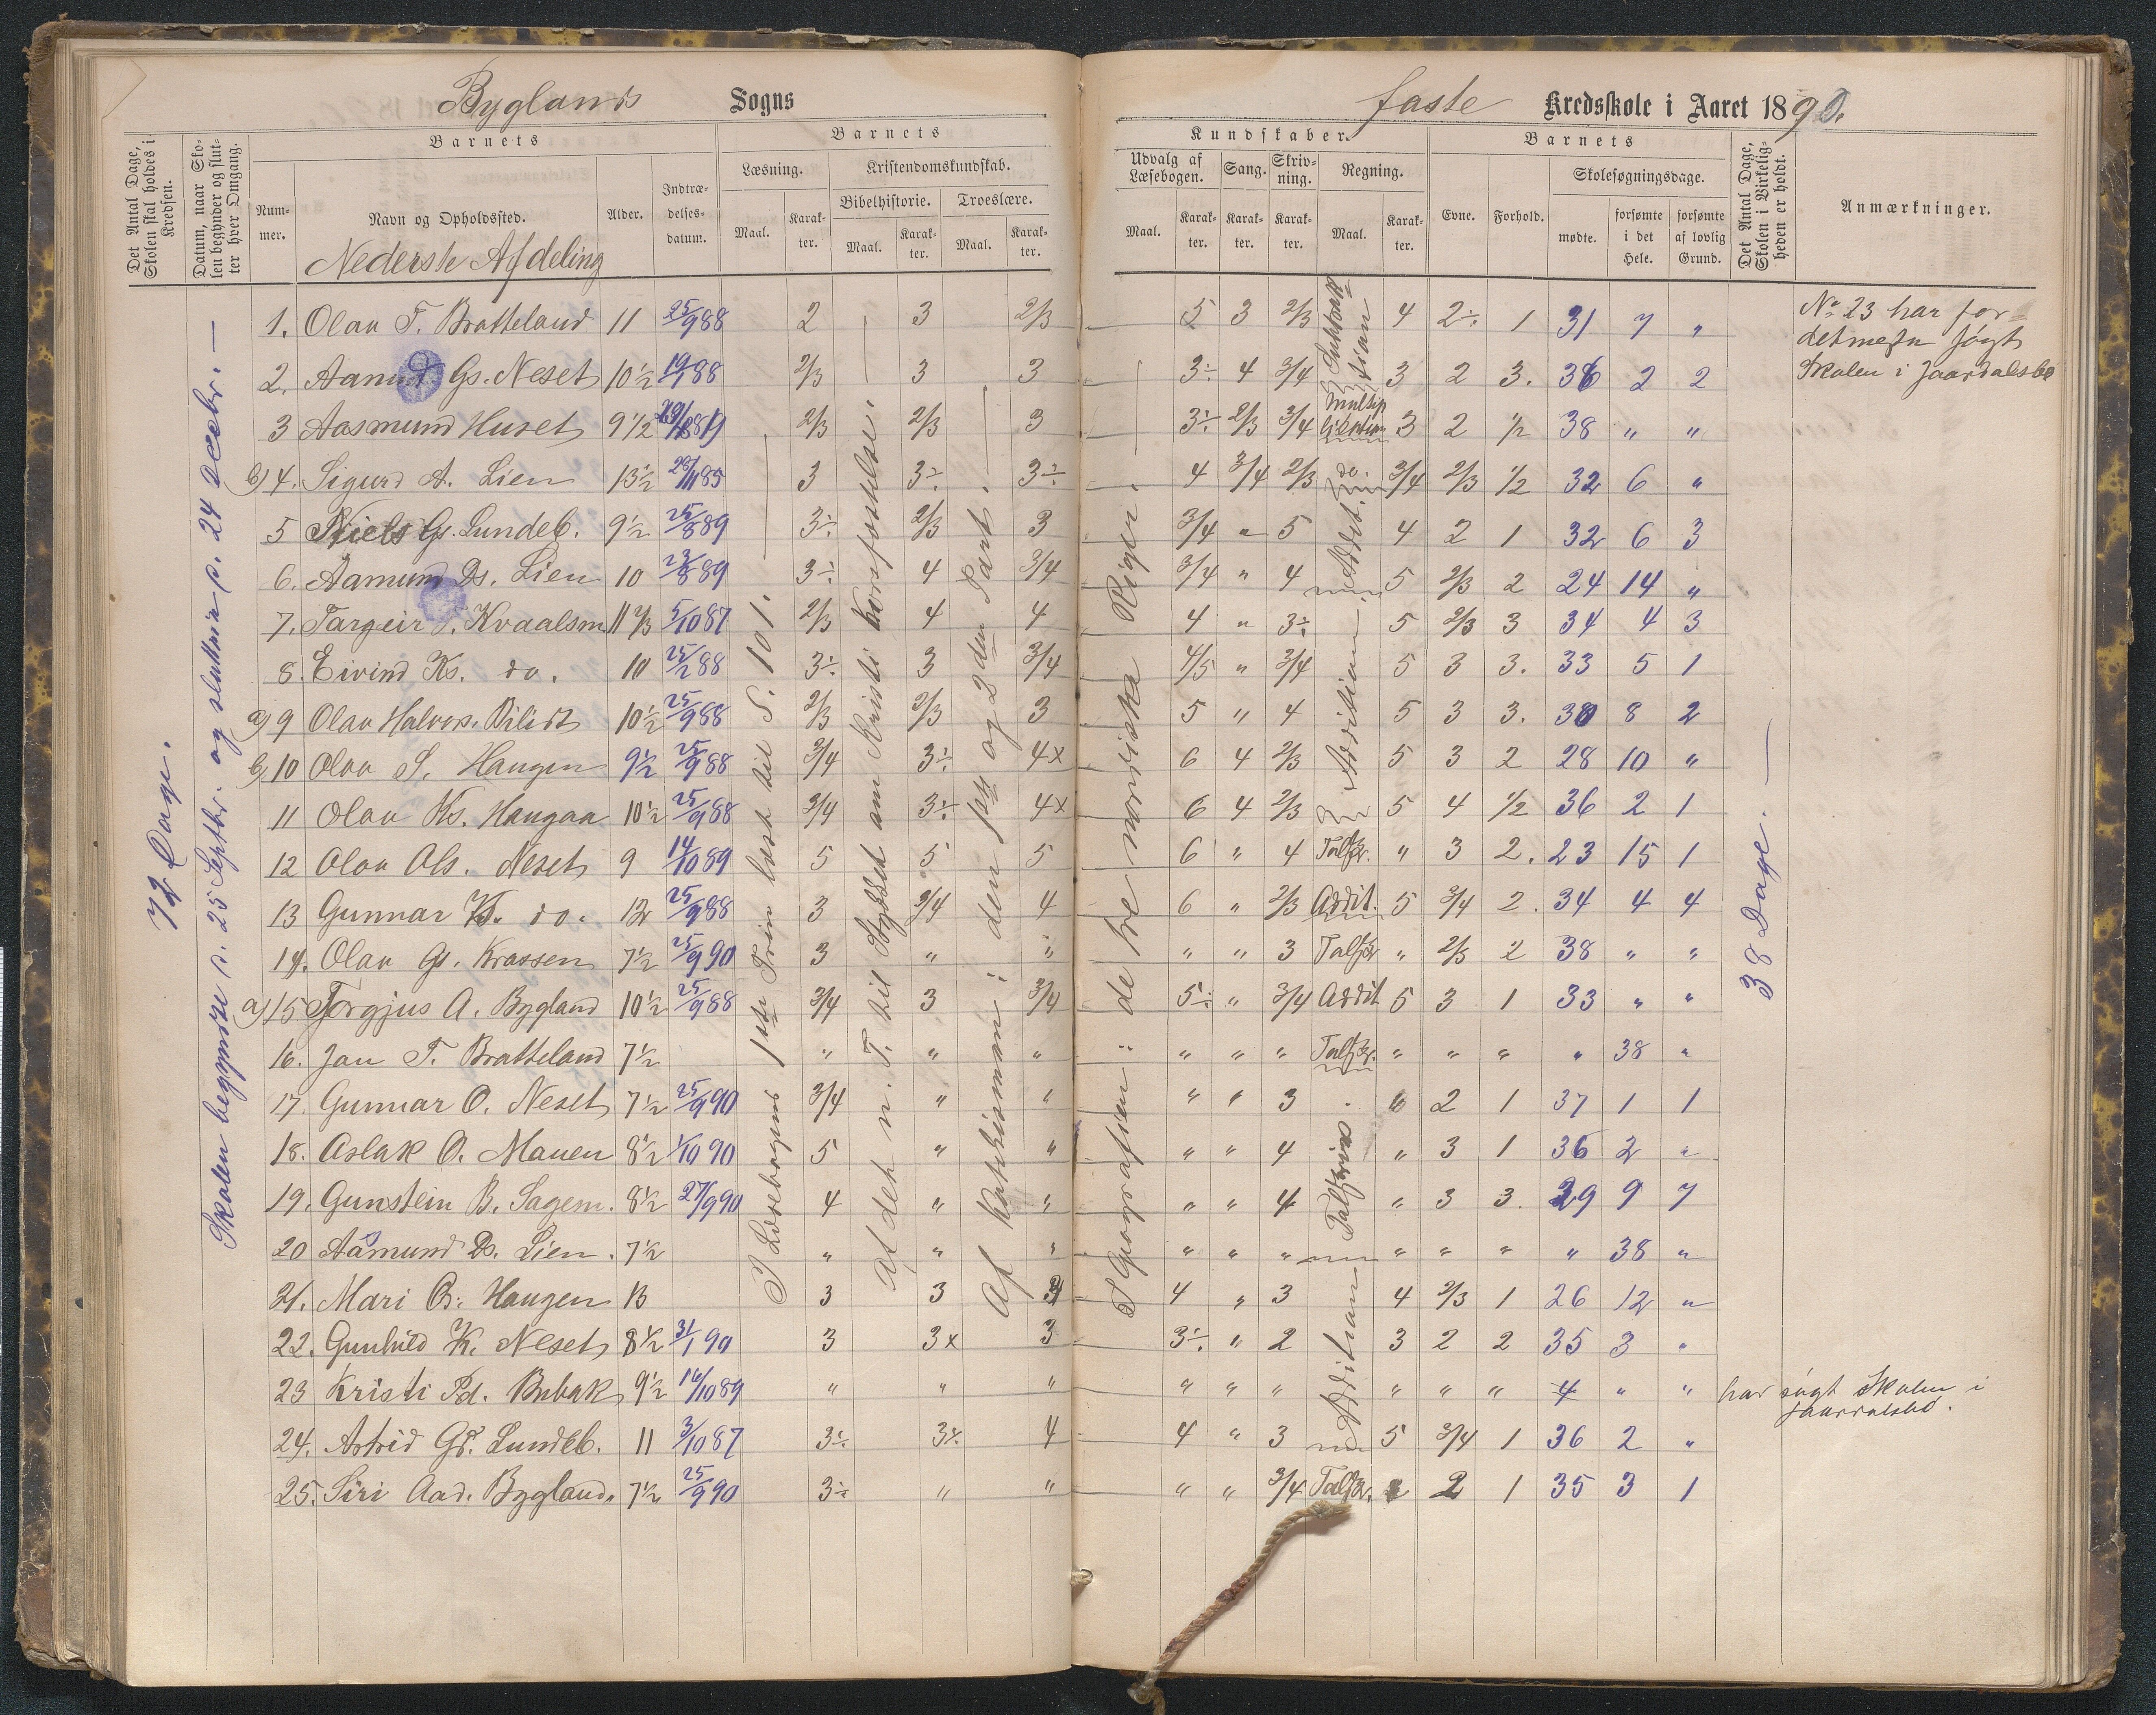 Byglands Sogns
faste Kredsskole i Aaret 1890.
Det Antal Dage, Skolen skal holdes i Kredsen.
Datum, naar Skolen begynder og slutter hver Omgang.
Barnets
Nummer.
Navn og Opholdssted.
Alder.
Indtrædelsesdatum.
Barnets
Læsning.
Maal.
Karakter.
Kristendomskundskab.
Bibelhistorie.
Maal.
Karakter.
Troeslære.
Maal.
Karakter.
Kundskaber.
Udvalg af Læsebogen.
Maal.
Karakter.
Sang.
Karakter.
Skrivning.
Karakter.
Regning.
Maal.
Karakter.
Barnets
Evne.
Forhold.
Skolesøgningsdage.
mødte.
forsømte i det Hele.
forsømte af lovlig Grund.
Det Antal Dage, Skolen i Virkeligheden er holdt.
Anmærkninger.
Nederste Afdeling
72 Dage.
Skolen begyndte d. 25 Septbr. og sluttede d. 24 Decbr. —
I Læsebogens 1ste Trin læst til S. 101. —
Af det n. T. til Stykket om Kristi Korsfæstelse. —
Af Katekismen: den 1ste og 2den Part. —
I Geografien: de tre nordiske Riger. —
38 Dage. —
1. Olav T. Bratteland 11 25/9 88 2 3 2/3 5 3 2/3 Subtraktion 4 2÷ 1 31 7 "
2. Aanund Gs. Neset 10½ 19/9 88 2/3 3 3 3÷ 4 3/4 3 2 3. 36 2 2
3 Aasmund Huset 9½ 2/3 2/3 3 3÷ 2/3 3/4 Multiplikation 3 2 ½ 38 " "
b) 4. Sigurd A. Lien 13½ 28/11 85 3 3÷ 3÷ 4 3/4 2/3 do. 3/4 2/3 ½ 32 6 "
5 Niels Gs. Lundeb. 9½ 25/8 89 3÷ 2/3 3 3/4 " 5 Addit. 4 2 1 32 6 3
6. Aamund Ds. Lien 10 23/8 89 3÷ 4 3/4 3/4 " 4 5 2/3 2 24 14 "
7. Targeir Kvaalsm 5/10 87 2/3 4 4 4 " 3÷ Addition 5 2/3 3 34 4 3
8. Eivind Ks. do. 10 25/2 88 3÷ 3 3/4 4/5 " 3/4 5 3 3. 33 5 1
a) 9 Olav Halvors. 10½ 25/9 88 2/3 2/3 3 5 " 4 5 3 3. 30 8 2
b) 10 Olav S. Haugen 9½ 25/9 88 3/4 3÷ 4x 6 4 2/3 5 3 2 28 10 "
11 Olav Ks. Haugaa 10½ 25/9 88 3/4 3÷ 4x 6 4 2/3 5 4 ½ 36 2 1
12 Olav Ols. Neset 9 14/10 89 5 5 5 6 " 4 Talskr. " 3 2. 23 15 1
13 Gunnar Ks. do. 12 25/9 88 3 3/4 4 6 " 2/3 Addit. 5 3/4 2. 34 4 4
14. Olav Gs. Krassen 7½ 25/9 90 3 " " " " 3 Talskr " 2/3 2 38 " "
a) 15 Torgjus A. Bygland 10½ 25/9 88 3/4 3 3/4 5÷ " 3/4 Addit 5 3 1 33 " "
16. Jan T. Bratteland 7½ " " " " " " Talskr. " " " " 38 "
17. Gunnar O. Neset 7½ 25/9 90 3/4 " " " " 3 2 1 37 1 1
18. Aslak O. Mauen 8½ 1/10 90 5 " " " " 4 Talskriv. " 3 1 36 2 "
19. Gunstein B. Sagem. 8½ 27/9 90 4 " " " " 4 " 3 3. 29 9 7
20 Aasmund Ds. Lien. 7½ " " " " " " " " " " 38 "
21. Mari Haugen 13 3 3 4 " 3 4 2/3 1 26 12 "
22. Gunhild K. Neset 8½ 31/1 90 3 3x 3 3÷ " 2 Addition 3 2 2 35 3 "
23 Kristi Pd. Bubak 9½ 16/10 89 " " " " " " " " " 4 " " har søgt Skolen i Jaardalsbø.
24. Astrid Gs. Lundeb. 11 3/10 87 3÷ 4 4 " 3 5 3/4 1 36 2 "
25. Siri Aad. Bygland. 7½ 25/9 90 3÷ " " " " 3/4 Talskr. 2 1 35 3 1
No 23 har for-
detmeste søgt
Skolen i Jaardalsbø